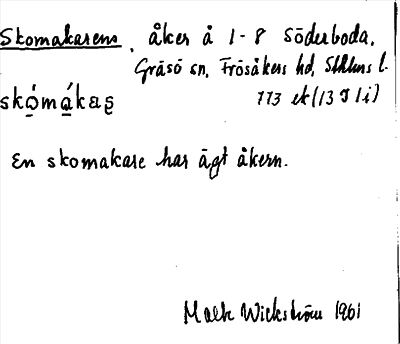 Skomakarens, åker å 1-8 Söderboda,
Gräsö sn, Frösåkers hd, Sthlms l.
skó̱má̱kaṣ 113 ek (13 J 1i)
En skomakare har ägt åkern.
Maek Wickström 1961